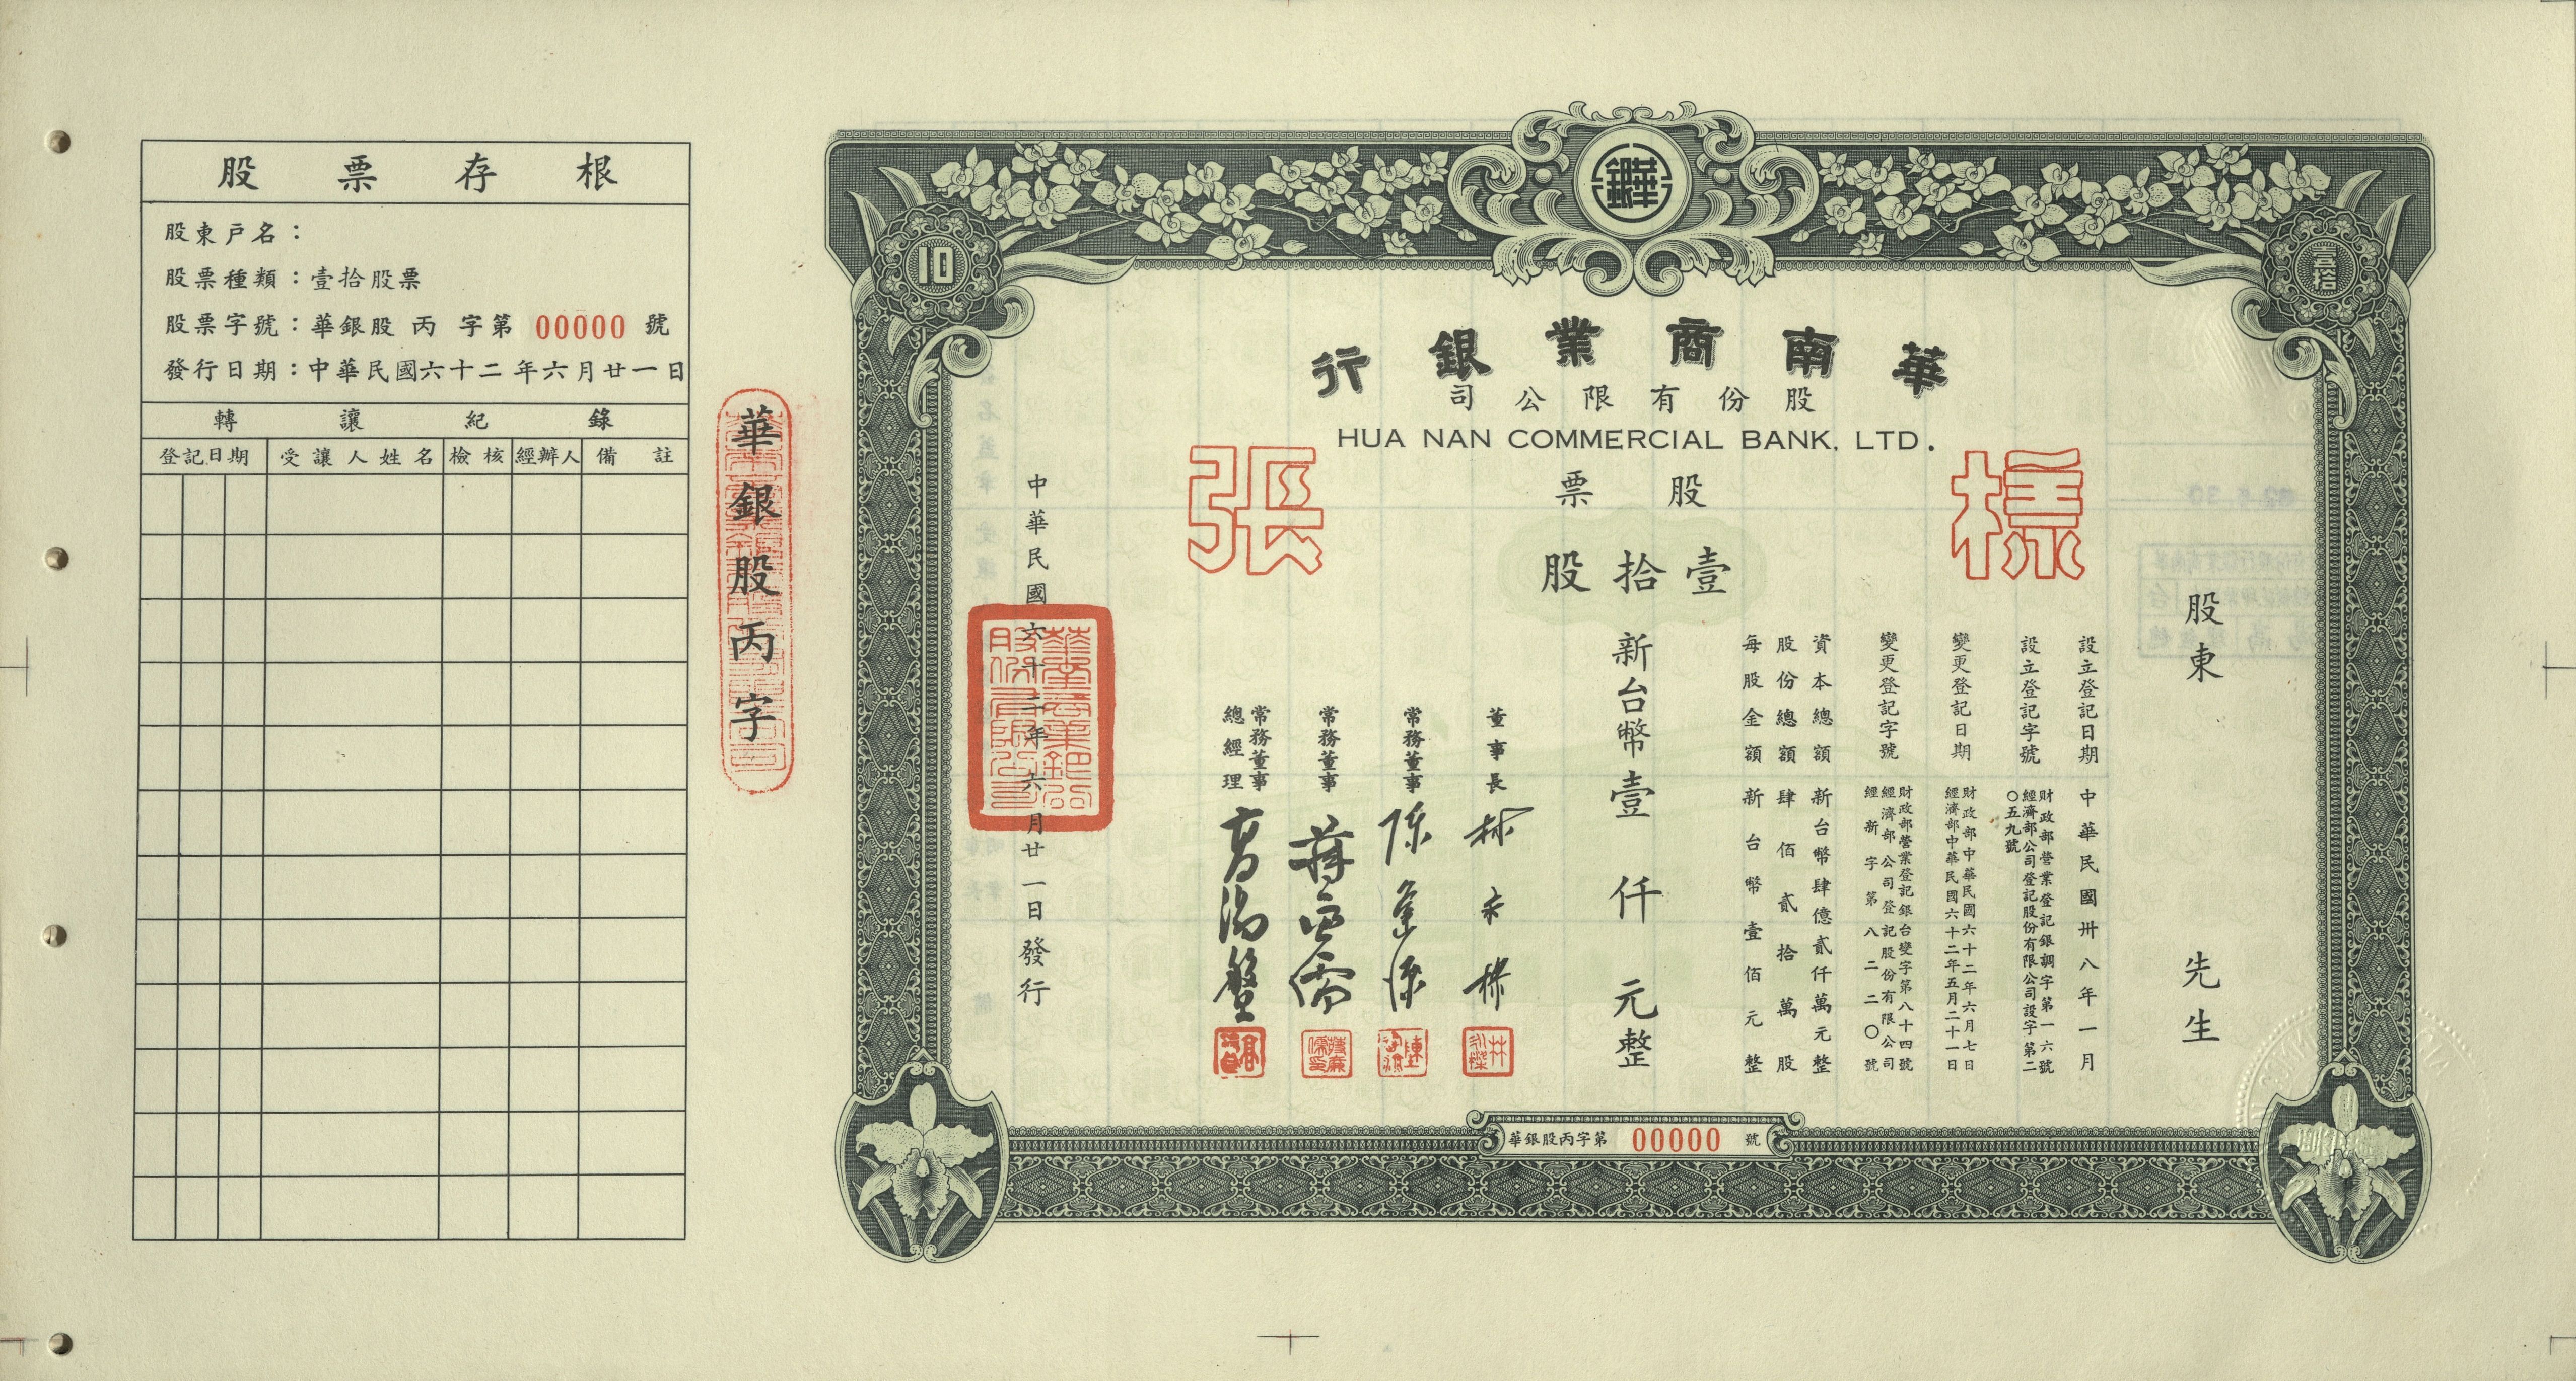 股票存根
股東戶名：
股票種類：壹拾股票
股票字號：華銀股 丙 字第 00000 號
發行日期：中華民國六十二年六月廿一日
轉讓紀錄
登記日期 受讓人姓名 檢核 經辦人 備註
華銀股丙字
10
壹拾
華銀
華南商業銀行
股份有限公司
HUA NAN COMMERCIAL BANK, LTD.
樣張
股票
壹拾股
股東 先生
設立登記日期 中華民國卅八年一月
設立登記字號 財政部營業登記銀調字第一六號
經濟部公司登記股份有限公司設字第二〇五九號
變更登記日期 財政部中華民國六十二年六月七日
經濟部中華民國六十二年五月二十一日
變更登記字號 財政部營業登記銀台變字第八十四號
經濟部公司登記股份有限公司
經新字第八二二〇號
資本總額 新台幣肆億貳仟萬元整
股份總額 肆佰貳拾萬股
每股金額 新台幣壹佰元整
新台幣壹仟元整
董事長 林
常務董事 陳
常務董事 蔣
常務董事
總經理 高
中華民國六十二年六月廿一日發行
華南商業銀行股份有限公司
華銀股丙字第 00000 號